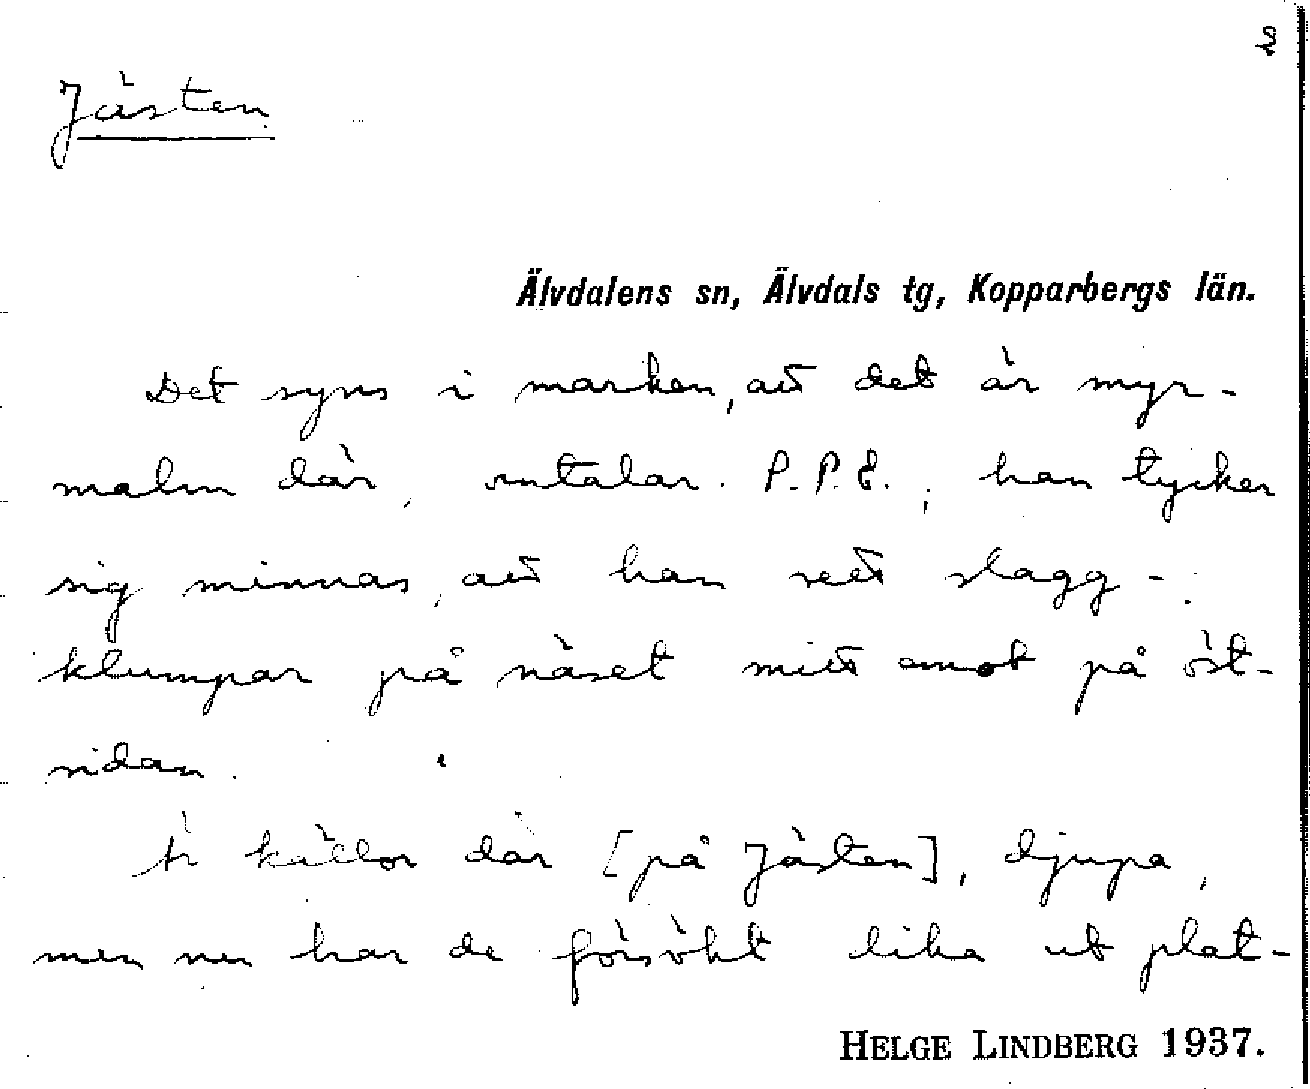 2
Jästen
Älvdalens sn, Älvdals tg, Kopparbergs län.
Det syns i marken, att det är myr-
malm där, omtalar P.P.E.; han tycker
sig minnas, att han sett slagg-
klumpar på näset mitt emot på öst-
sidan.
Är källor där [på Jästen], djupa,
men nu har de försökt lika ut plat-
HELGE LINDBERG 1937.